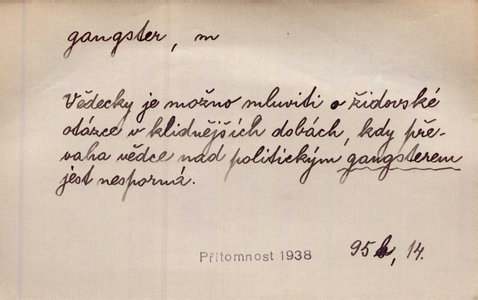 gangster, m
Vědecky je možno mluviti o židovské
otázce v klidnějších dobách, kdy pře-
vaha vědce nad politickým gangsterem
jest nesporná.
Přítomnost 1938 95b, 14.